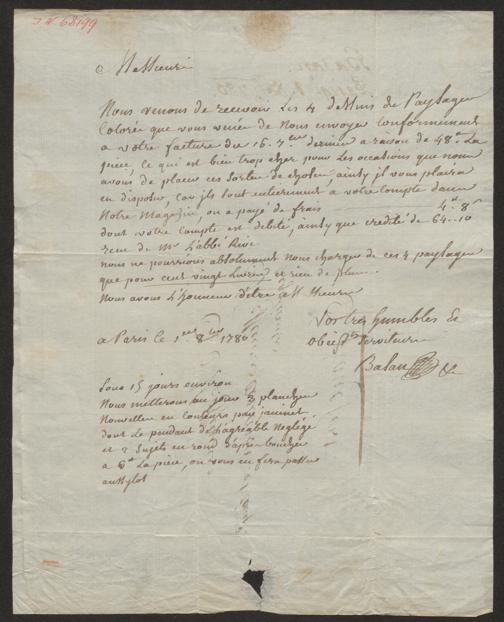 Messieurs
Nous venons de recevoir Les 4 dessins de Paysages
Colorés que vous venés de Nous envoyer Conformement
a votre facture du 16. 7.bre dernier a raison de 48.# La
piece, Ce qui est bien trop cher pour Les occasions que nous
avons de placer ces sortes de choses, ainsy jl vous plaira
en disposer, Car jls sont entierement a votre Compte dans
Notre Magazin, on a payé de frais 4.# 8.s
dont votre Compte est debité, ainsy que credité de 64..10
recu de Mr L'abbé Rive
nous ne pourrions absolument nous charger de ces 4 paysages
que pour cent vingt Livres et rien de plus.
Nous avons L'honneur d'etre Messieurs
Vos tres humbles &
obeissts Serviteurs
a Paris le 1er 8bre 1780
Basan & Ce
Sous 15 jours environ
Nous metterons au jour 3 planches
Nouvelles en Couleurs par janinet.
dont Le pendant de L'agreable Neglegé
et 2 Sujets en rond d'apres boucher
a 6# La piece, on vous en fera passer
aussytot